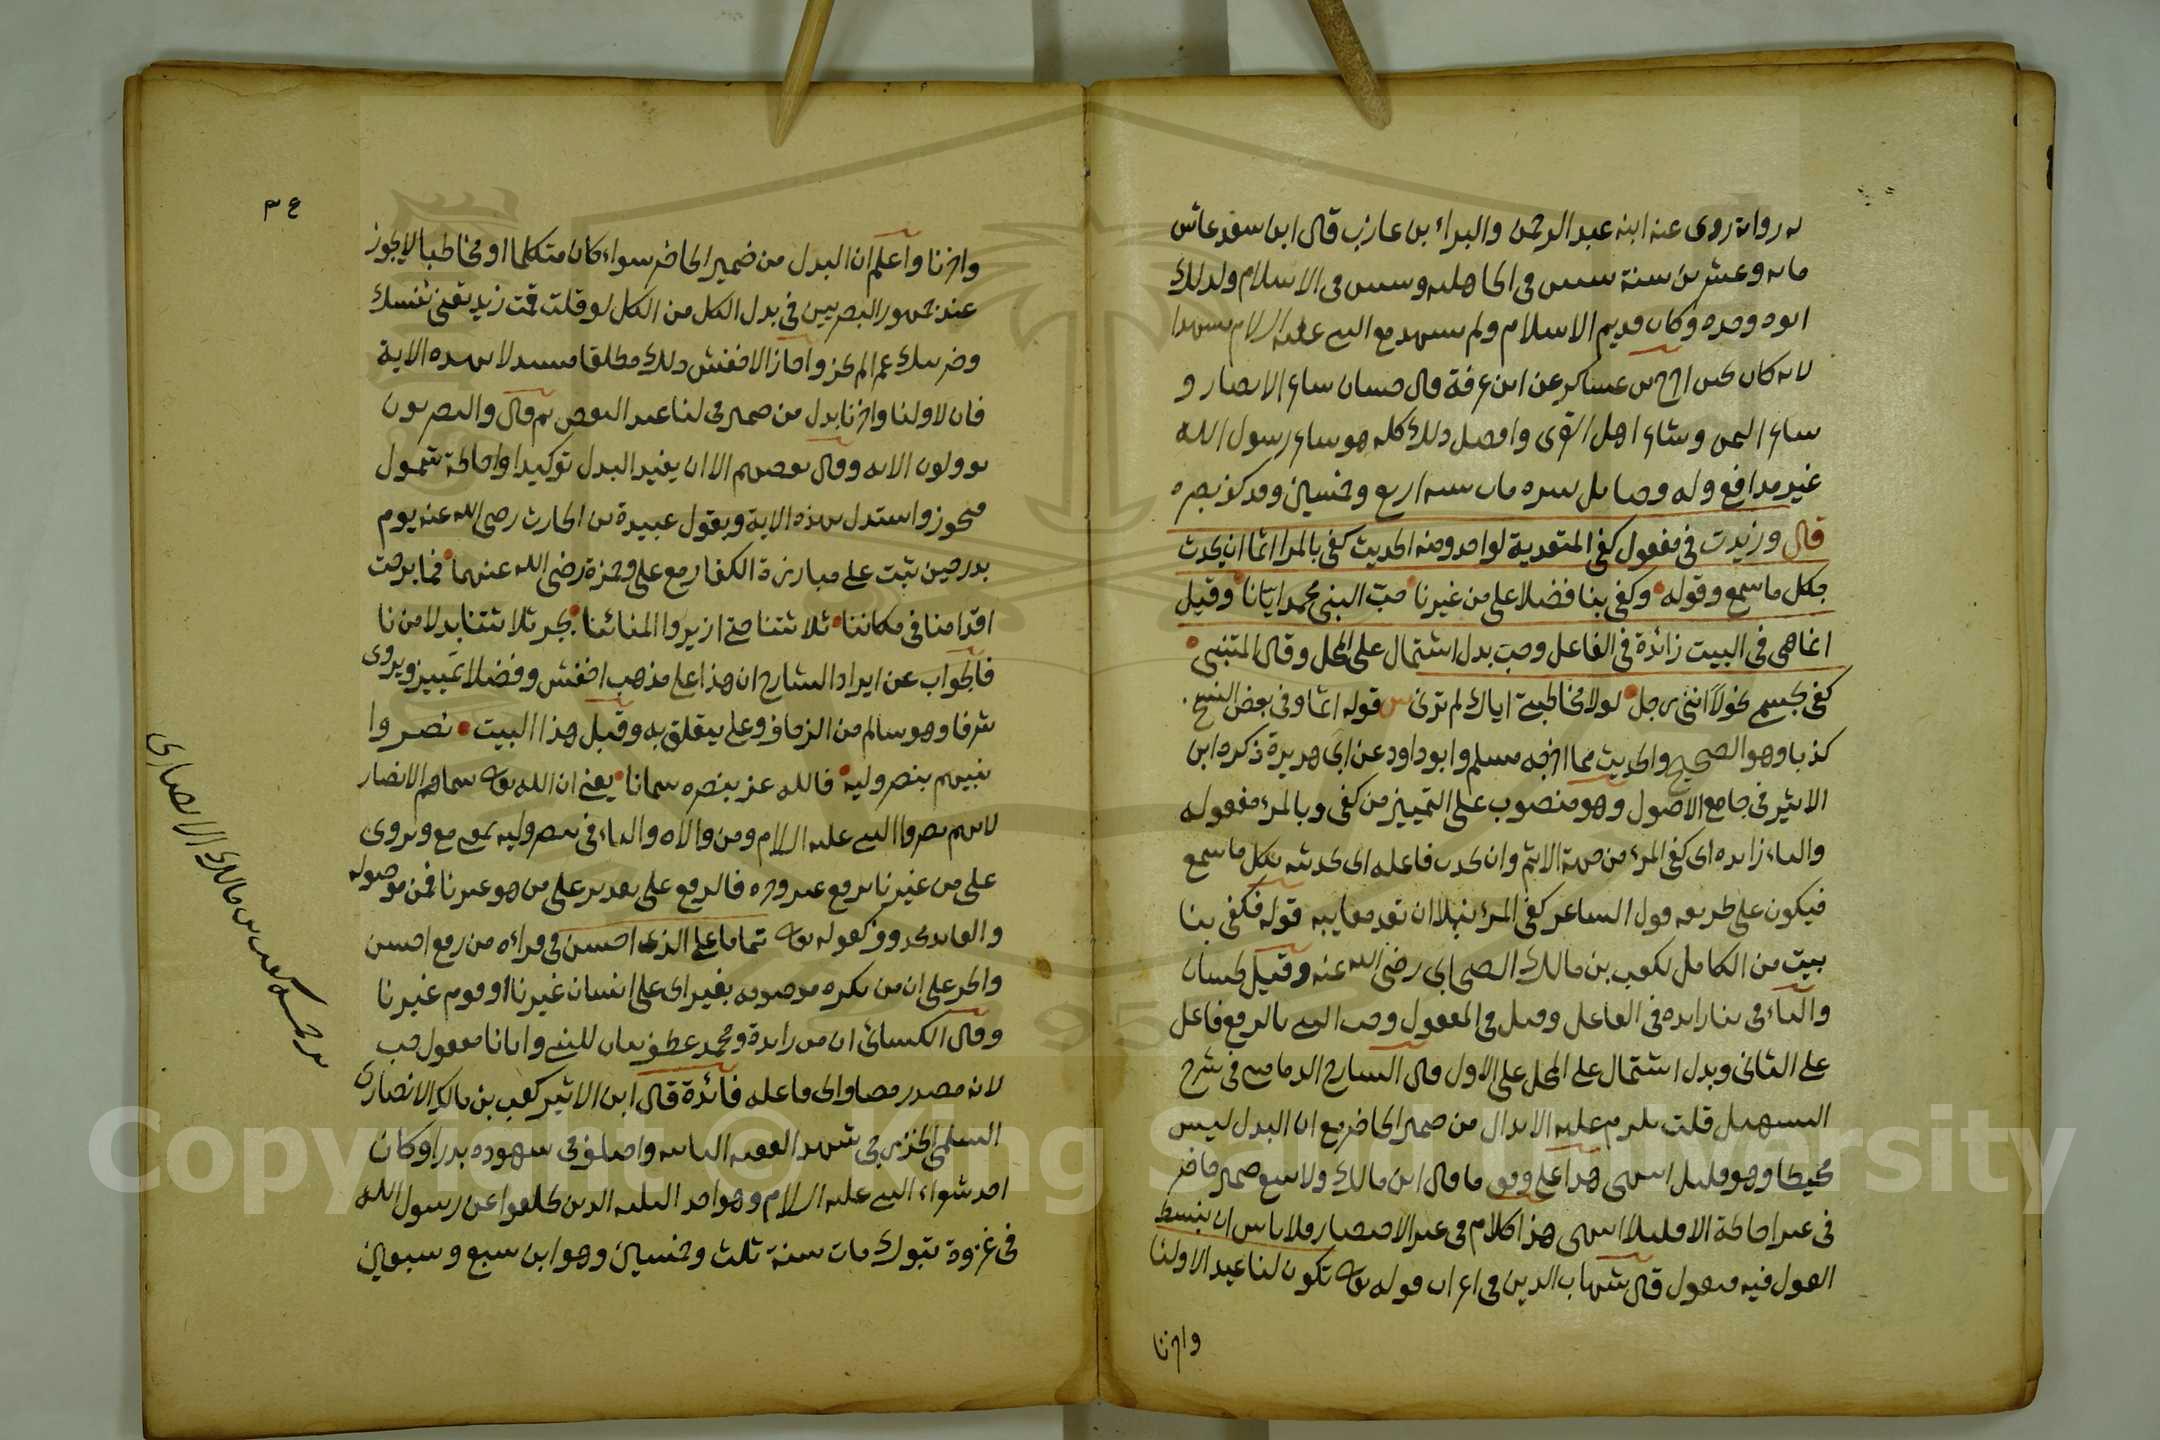 له رواية روى عنه ابنه عبد الرحمن والبراء بن عازب قال ابن سعد عاش
مايه وعشرين سنة ستين في الجاهليه وستين في الاسلام ولذلك
ابوه وجده وكان قديم الاسلام ولم يشهد مع النبي عليه السلام مشهدا
لانه كان يجبن اخرج بن عساكر عن ابن عرفة قال حسان شاعر الانصار و
شاعر اليمن وشاعر اهل القرى وافضل ذلك كله هو شاعر رسول الله
غير مدافع وله وصايل سره مات سنه اربع وخمسين وقد كف بصره
قال وزيدت في مفعول كفى المتعدية لواحد ومنه الحديث كفى بالمرا اثما ان يحدث
بكل ما سمع وقوله وكفى بنا فضلا على من غيرنا حب النبي محمد ايانا وقيل
انما هي في البيت زائدة في الفاعل وحب بدل اشتمال على المحل وقال المتنبي
كفى بجسمي نحولا انني رجل لولا مخاطبتي اياك لم ترني س قوله اثما وفي بعض النسخ
كذبا وهو الصحيح والحديث مما اخرجه مسلم وابو داود عن ابي هريرة ذكره ابن
الاثير في جامع الاصول وهو منصوب على التمييز من كفى وبالمرء مفعوله
والباء زايده اى كفى المرء من جهة الاثم وان يحدث فاعله اى تحدثه بكل ما سمع
فيكون على طريقه قول الشاعر كفى المرء نبلا ان تعد معايبه قوله فكفى بنا
بيت من الكامل لكعب بن مالك الصحابي رضى الله عنه وقيل لحسان
والباء في بنا زايده في الفاعل وقيل في المفعول وحب النبي بالرفع فاعل
على الثاني وبدل اشتمال على المحل على الاول قال الشارح الدماميني في شرح
التسهيل قلت يلزم عليه الابدال من ضمير الحاضر مع ان البدل ليس
محيطا وهو قليل انتهى هذا على وفق ما قال ابن مالك ولا يتبع ضمير حاضر
في غير احاطة الا قليلا انتهى هذا كلام في غير الاختصار فلا باس ان ينبسط
القول فيه فنقول قال شهاب الدين في اعراب قوله تعالى تكون لنا عيدا لاولنا
واخرنا
٣٤
واخرنا واعلم ان البدل من ضمير الحاضر سواء كان متكلما او مخاطبا لا يجوز
عند جمهور البصريين في بدل الكل من الكل لو قلت قمت زيد يعني نفسك
وضربتك عمرا لم يجز واجاز الاخفش ذلك مطلقا مستدلا بهذه الاية
فان لاولنا واخرنا بدل من ضمير في لنا عند البعض ثم قال والبصريون
يوولون الايه وقال بعضهم الا ان يفيد البدل توكيدا واحاطة شمول
فيجوز واستدل بهذه الاية وبقول عبيدة بن الحارث رضى الله عنه يوم
بدر حين ثبت على مبارزة الكفار مع على وحمزة رضى الله عنهما فما برحت
اقدامنا في مكاننا ثلاثتنا حتى ازيروا المنائنا بجر ثلاثتنا بدلا من نا
فالجواب عن ايراد الشارح ان هذا على مذهب اخفش وفضلا تمييز ويروى
شرفا وهو سالم من الزحاف وعلى يتعلق به وقبل هذا البيت نصروا
نبيهم بنصر وليه فالله عز بنصره سمانا يعني ان الله تعالى سماهم الانصار
لانهم نصروا النبي عليه السلام ومن والاه والباء في بنصر وليه بمعنى مع ويروى
على من غيرنا برفع غير وجره فالرفع على تقدير على من هو غيرنا فمن موصوله
والعايد محذوف كقوله تعالى تماما على الذى احسن في قراءه من رفع احسن
والجر على ان من نكره موصوفه بغير اى على انسان غيرنا او قوم غيرنا
وقال الكسائي ان من زايدة ومحمد عطف بيان للنبي وايانا مفعول حب
لانه مصدر مضاف الى فاعله فائدة قال ابن الاثير كعب بن مالك الانصارى
السلمي الخزرجي شهد العقبه الثانيه واختلف في شهوده بدرا وكان
احد شعراء النبي عليه السلام وهو احد الثلثه الذين تخلفوا عن رسول الله
في غزوة تبوك مات سنة ثلث وخمسين وهو ابن سبع وسبعين
ترجمة كعب بن مالك الانصارى
Copyright © King Saud University